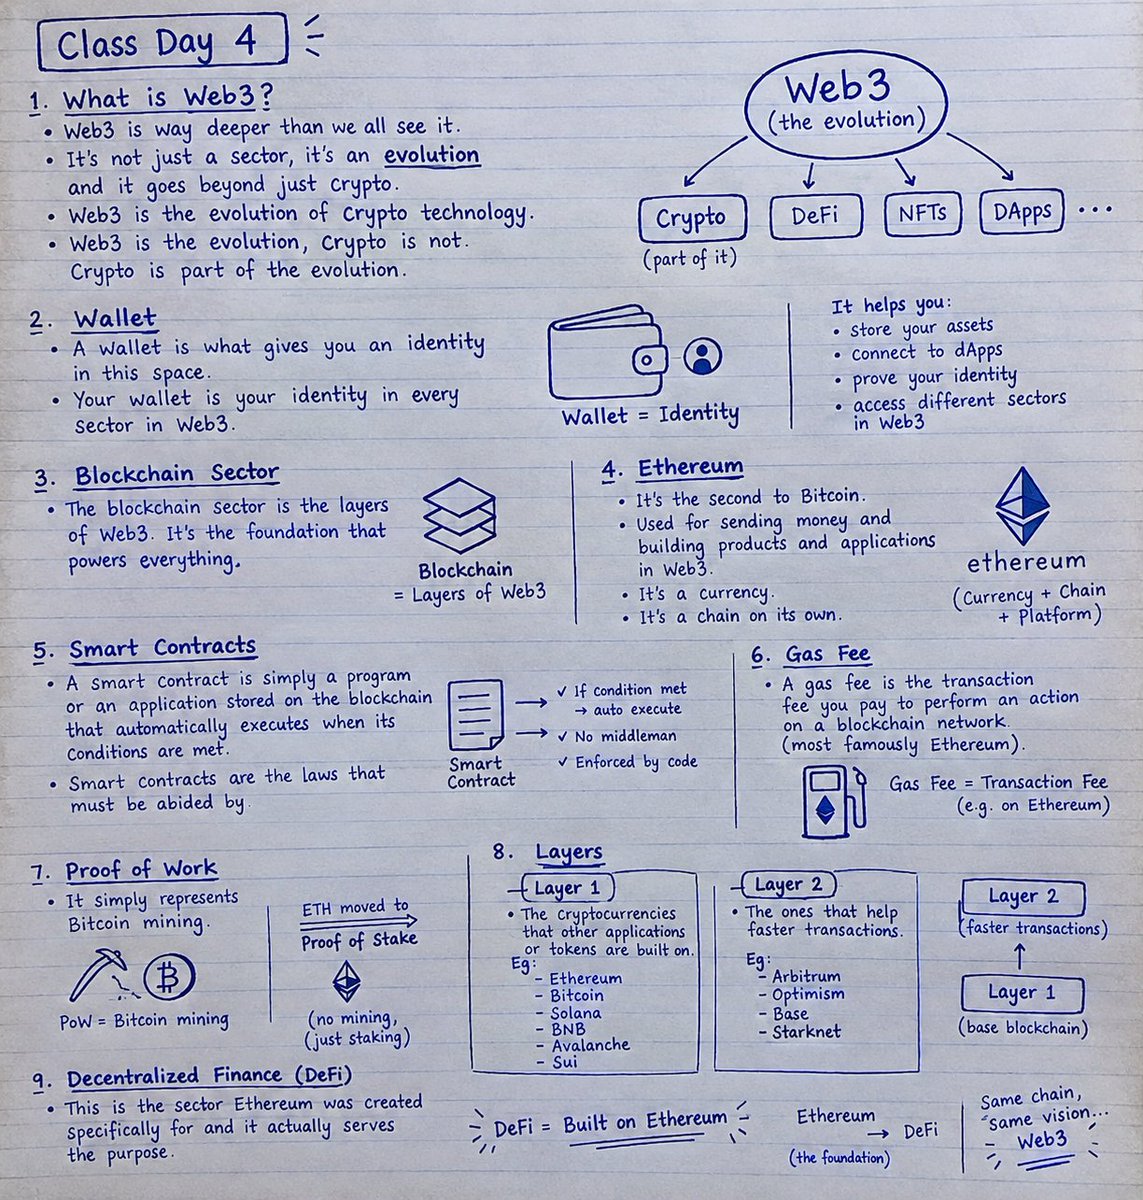 Class Day 4
1. What is Web3?
• Web3 is way deeper than we all see it.
• It's not just a sector, it's an evolution
and it goes beyond just Crypto.
• Web3 is the evolution of Crypto technology.
• Web3 is the evolution, Crypto is not.
Crypto is part of the evolution.
Web3
(the evolution)
Crypto
DeFi
NFTs
DApps
...
(part of it)
2. Wallet
• A Wallet is what gives you an identity
in this space.
• Your wallet is your identity in every
sector in Web3.
Wallet = Identity
It helps you:
• store your assets
• connect to dApps
• prove your identity
• access different sectors
in Web3
3. Blockchain Sector
• The blockchain sector is the layers
of Web3. It's the foundation that
powers everything.
Blockchain
= Layers of Web3
4. Ethereum
• It's the second to Bitcoin.
• Used for sending money and
building products and applications
in Web3.
• It's a currency.
• It's a chain on its own.
ethereum
(Currency + Chain
+ Platform)
5. Smart Contracts
• A Smart Contract is simply a program
or an application stored on the blockchain
that automatically executes when its
Conditions are met.
• Smart Contracts are the laws that
must be abided by.
Smart
Contract
✓ If condition met
→ auto execute
✓ No middleman
✓ Enforced by code
6. Gas Fee
• A gas fee is the transaction
fee you pay to perform an action
on a blockchain network.
(most famously Ethereum).
Gas Fee = Transaction Fee
(e.g. on Ethereum)
7. Proof of Work
• It simply represents
Bitcoin mining.
PoW = Bitcoin mining
ETH moved to
Proof of Stake
(no mining,
(just staking)
8. Layers
Layer 1
• The Cryptocurrencies
that other applications
or tokens are built on.
Eg:
- Ethereum
- Bitcoin
- Solana
- BNB
- Avalanche
- Sui
Layer 2
• The ones that help
faster transactions.
Eg:
- Arbitrum
- Optimism
- Base
- Starknet
Layer 2
(faster transactions)
Layer 1
(base blockchain)
9. Decentralized Finance (DeFi)
• This is the sector Ethereum was created
specifically for and it actually serves
the purpose.
DeFi = Built on Ethereum
Ethereum
→ DeFi
(the foundation)
Same chain,
same vision...
Web3